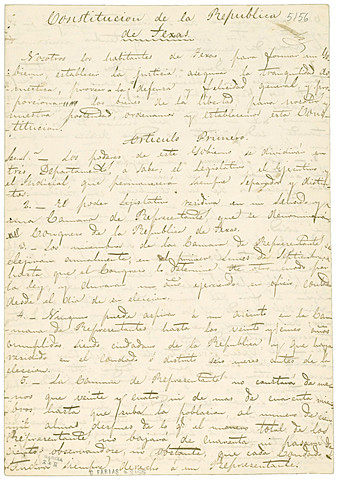 Constitucion de la Republica
5156
de Texas
Nosotros los habitantes de Texas, para formar un Go-
bierno, establecer la justicia, asegurar la tranquilidad do-
mestica, proveer a la defensa y felicidad general y pro-
porcionar los bienes de la libertad para nosotros y
nuestra posteridad, ordenamos y establecemos esta Cons-
titucion.
Articulo Primero.
Los poderes de este Gobierno se dividirán en
tres Departamentos, a saber, el Legislativo, el Ejecutivo y
el Judicial que permanecerán siempre separados y distin-
tos.
2. - El poder Legislativo residirá en un Senado y
una Camara de Representantes, que se denominará
el Congreso de la Republica de Texas.
3. - Los miembros de la Camara de Representantes se
elegirán anualmente, en el primer Lunes de Septiembre,
hasta que el Congreso lo determine de otro modo por
la ley, y durarán un año ejerciendo su oficio, contado
desde el dia de su eleccion.
4. - Ninguno puede aspirar a un asiento en la Ca-
mara de Representantes hasta los veinte y cinco años
cumplidos siendo ciudadano de la Republica y que haya
residido en el condado o distrito seis meses antes de la
eleccion.
5. - La Camara de Representantes no constará de me-
nos que veinte y cuatro, ni de mas de cuarenta miem-
bros hasta que suba la poblacion al numero de cien
mil almas despues de lo qe el numero total de los
Representantes no bajará de cuarenta ni pasará de
ciento, observandose, no obstante, que cada Condado
tendra siempre derecho a un Representante.